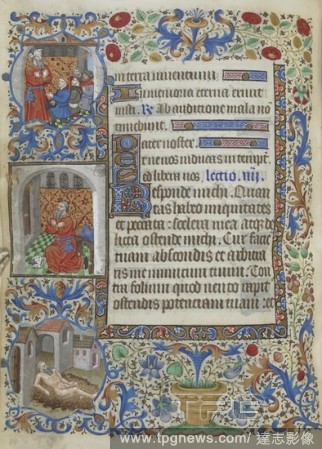 in terra viuentium
In memoria eterna erunt
iusti. R. Ab auditione mala nō
timebunt.
Pater noster.
Et ne nos inducas in tempt.
S libera nos. lectio. iiij.
Responde michi. Quan
tas habeo iniquitates
et peccata: scelera mea atqz de
licta ostende michi. Cur facie
tuam abscondis et arbitra
ris me inimicum tuum. Con
tra folium quod uento rapit
ostendis potentiam tuam: et
www.tpgnews.com/ 達志影像